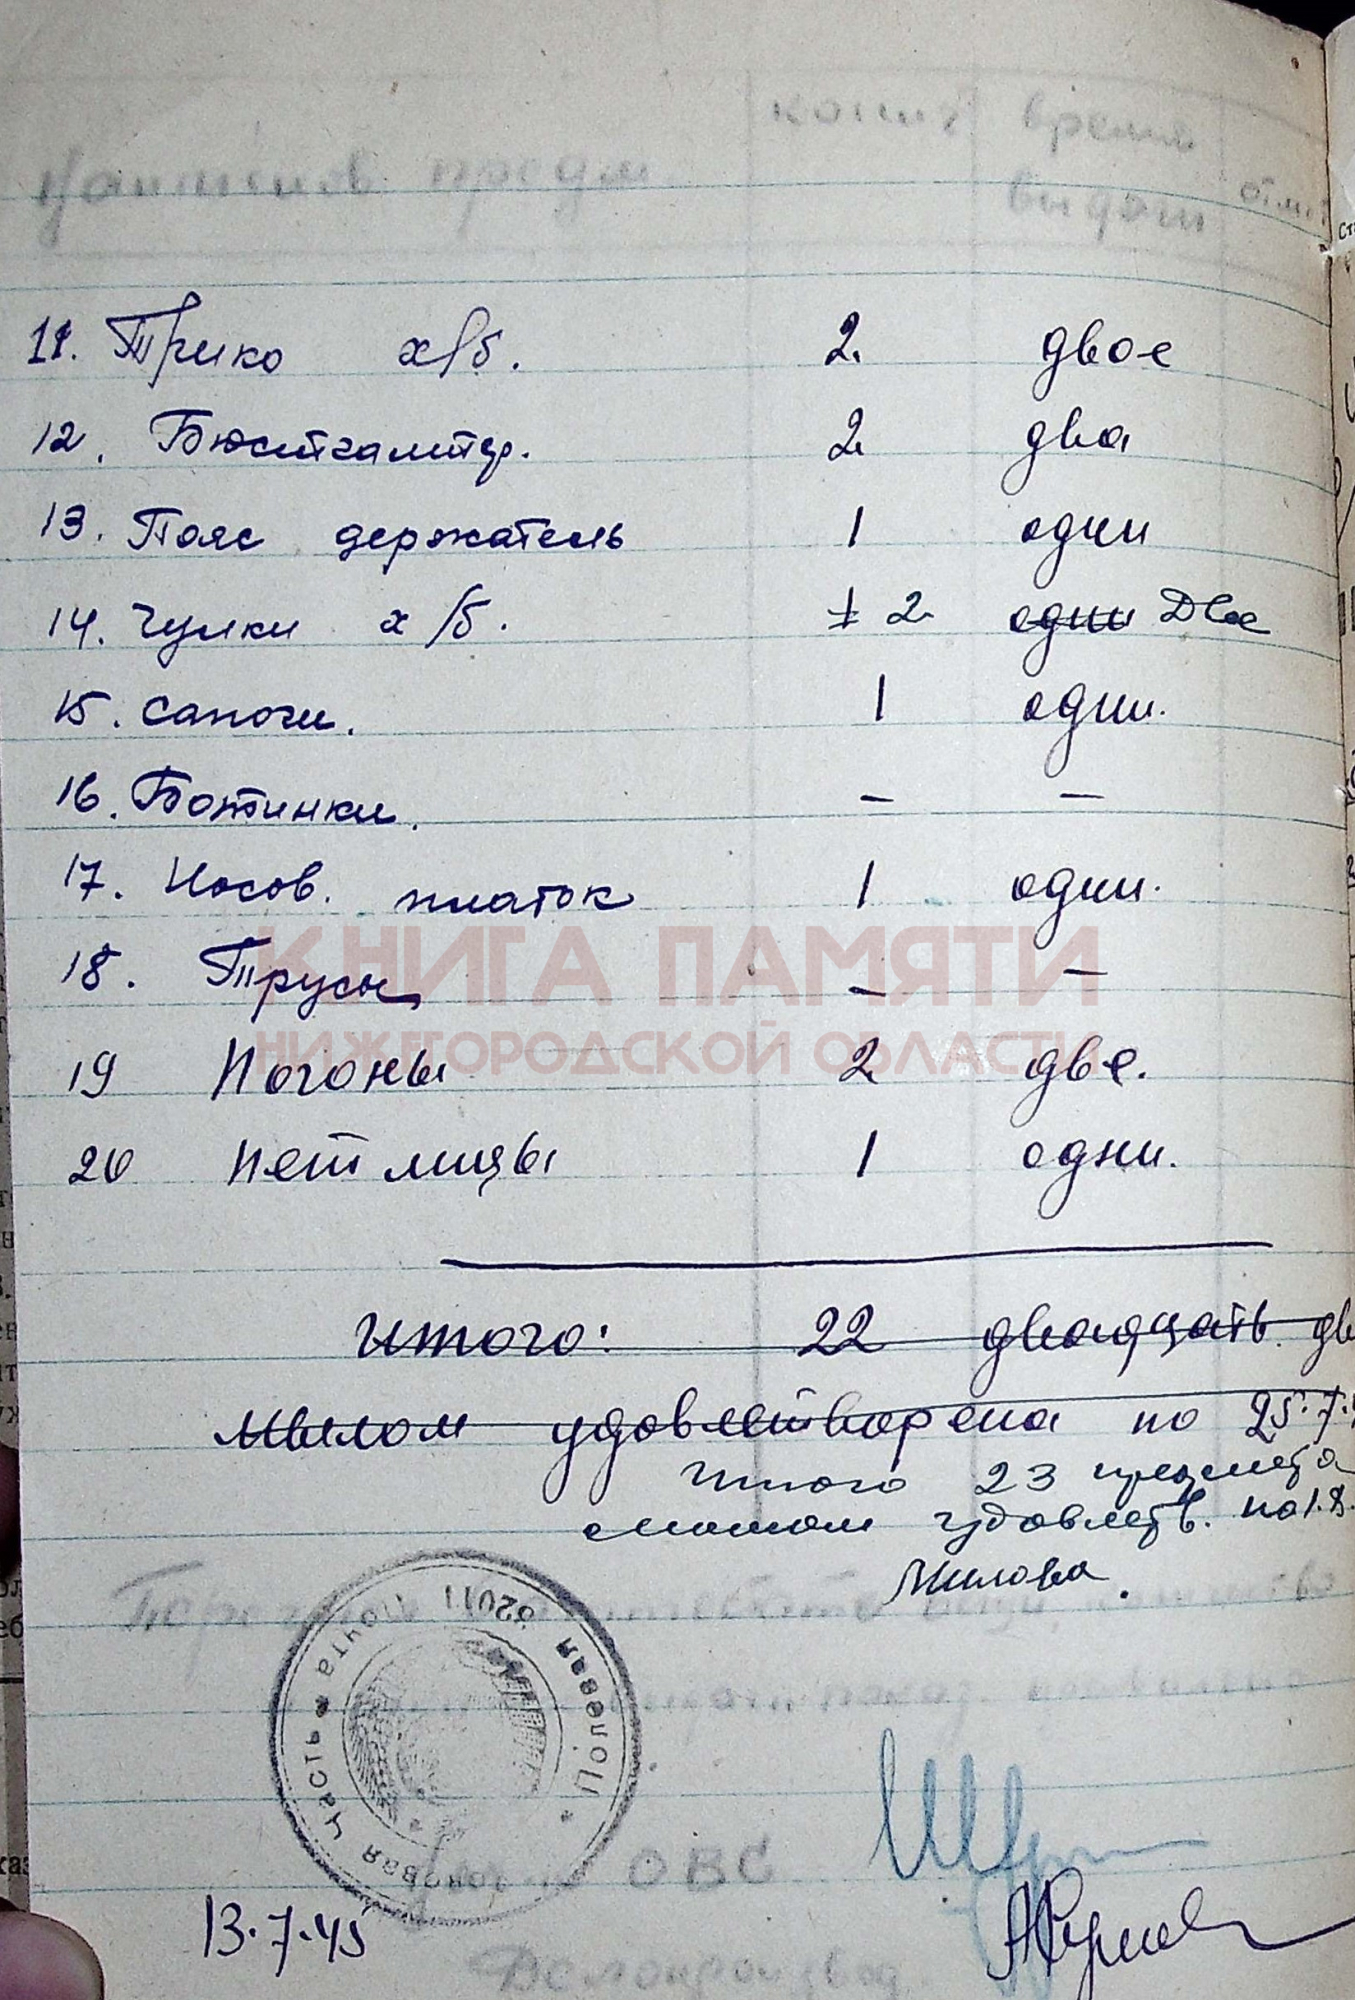 Наименов предм. колич время выдачи отм.
11. Трико х/б. 2 двое
12. Бюстгалтер. 2 два
13. Пояс держатель 1 один
14. Чулки х/б. 1 2 одни Две
15. Сапоги. 1 одни.
16. Ботинки. — —
17. Носов. платок 1 один.
18. Трусы — —
19 Погоны 2 две.
20 Петлицы 1 одни.
КНИГА ПАМЯТИ
НИЖЕГОРОДСКОЙ ОБЛАСТИ
Итого: 22 двадцать дв
Мылом удовлетворена по 25.7.
Итого 23 предмета
удовлетв. по 1.8.
Милова.
Полевая Почта 32011
часть
ОВС
13.7.45
Делопроизвод.